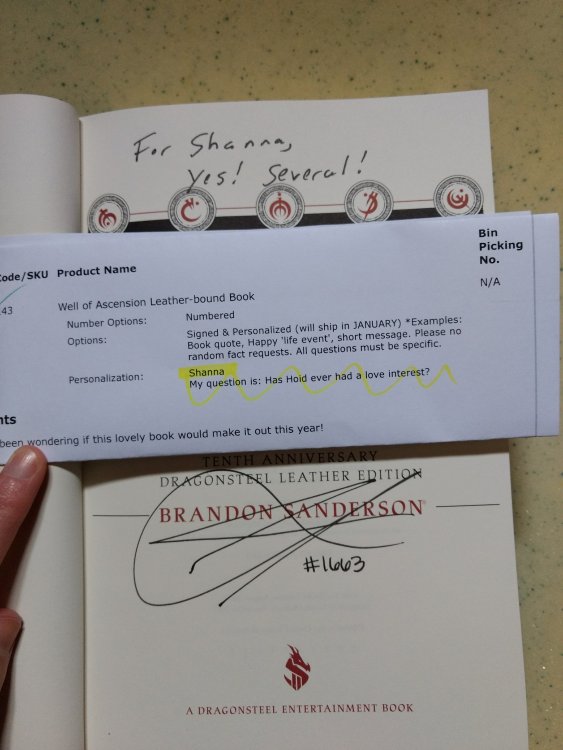 For Shanna,
Yes! Several!
Code/SKU Product Name Bin Picking No.
143 Well of Ascension Leather-bound Book N/A
Number Options: Numbered
Options: Signed & Personalized (will ship in JANUARY) *Examples:
Book quote, Happy 'life event', short message. Please no
random fact requests. All questions must be specific.
Personalization: Shanna
My question is: Has Hoid ever had a love interest?
nts
been wondering if this lovely book would make it out this year!
TENTH ANNIVERSARY
DRAGONSTEEL LEATHER EDITION
BRANDON SANDERSON®
#1663
A DRAGONSTEEL ENTERTAINMENT BOOK